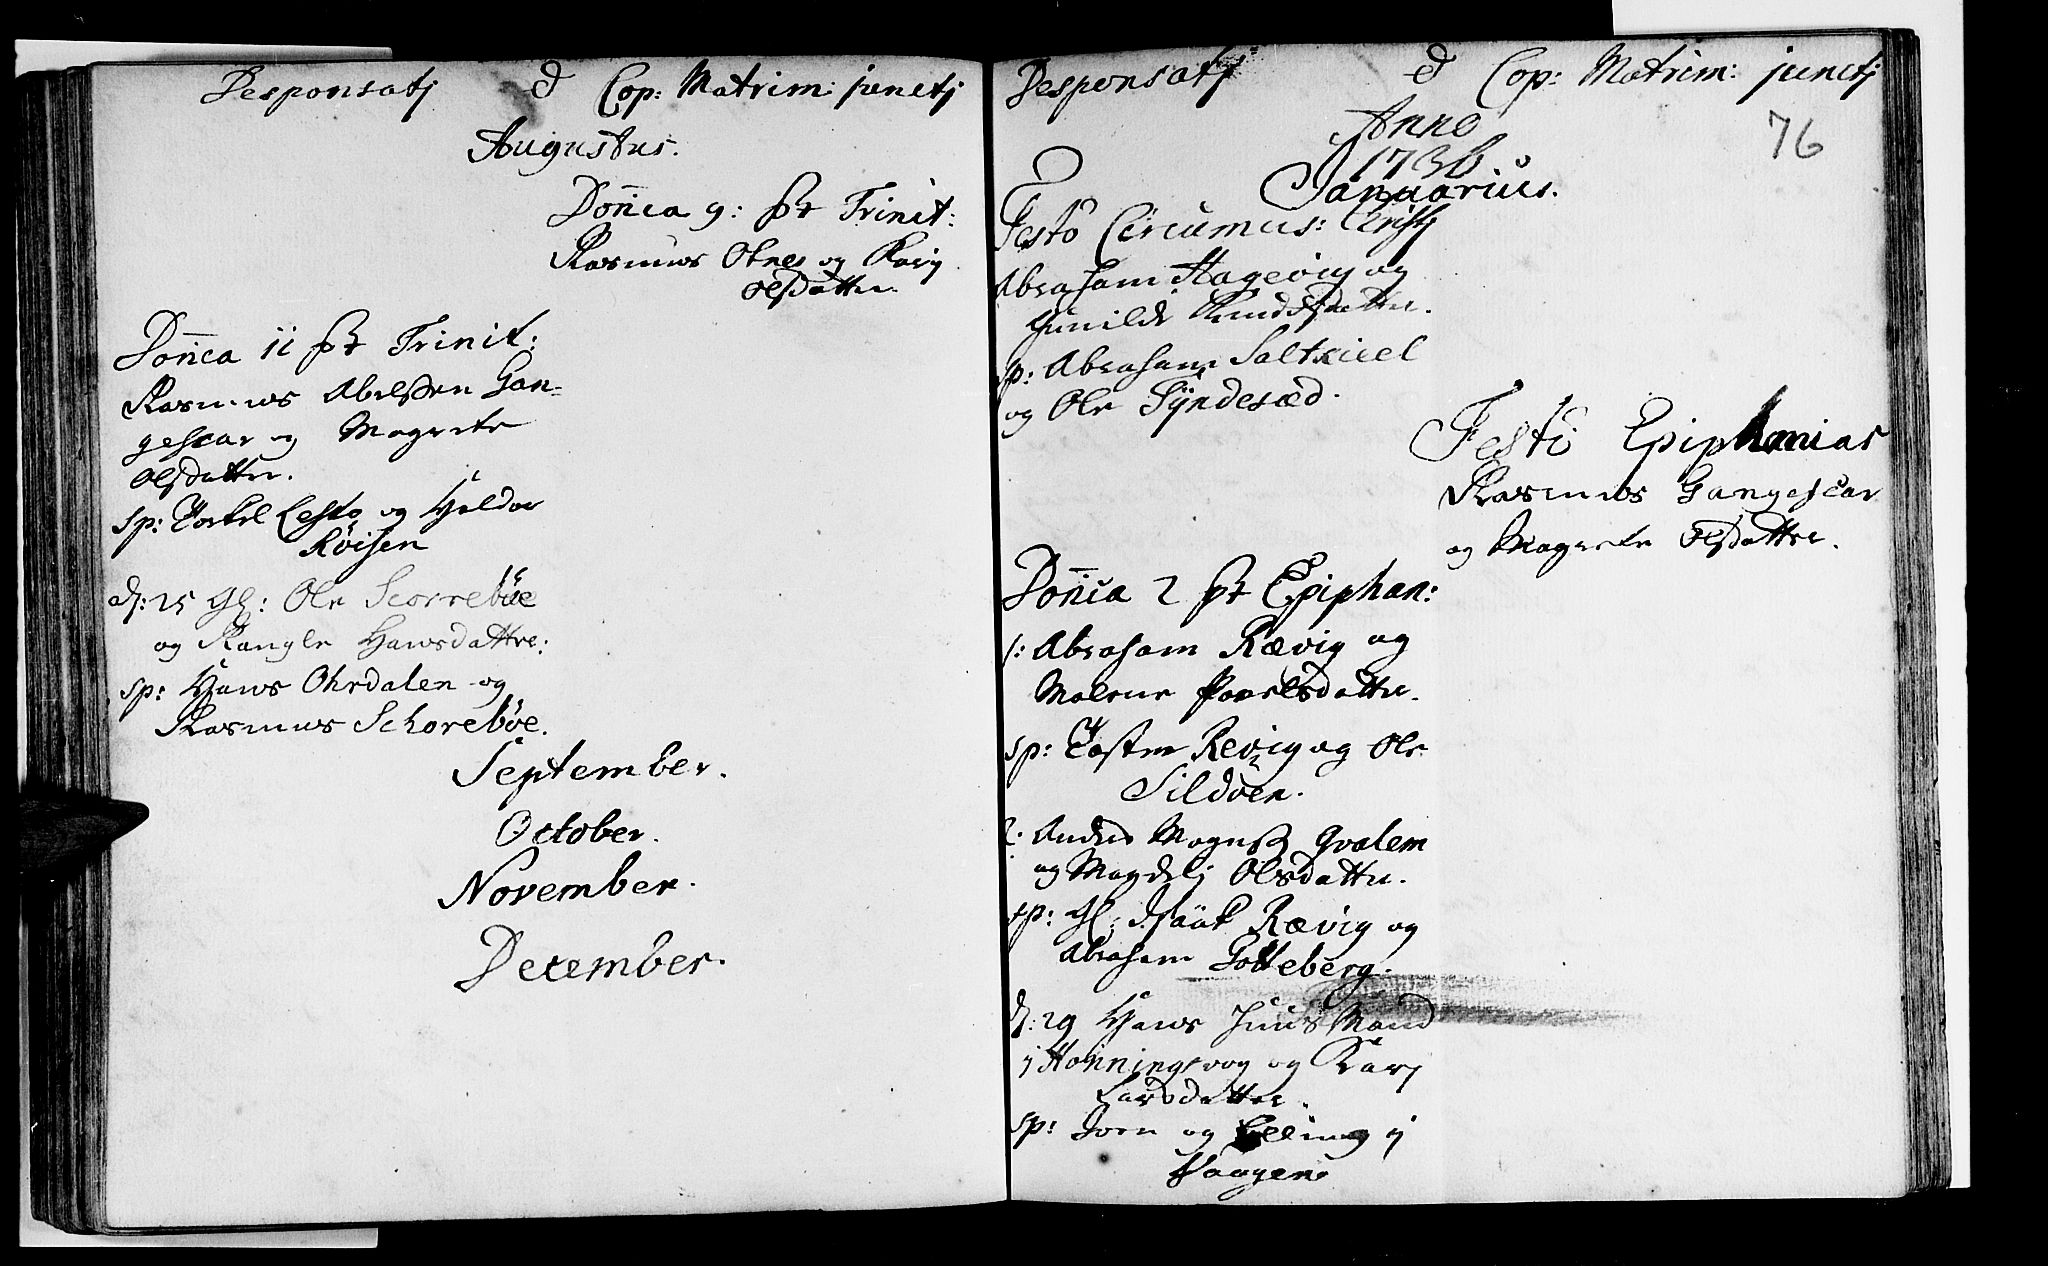 Desponsatj & Cop: Matrim: junctj
Augustus.
Doñica 9: pt Trinit:
Rasmus Olnes og Karj
Olsdatter.
Doñica 11 pt Trinit:
Rasmus Abelsen Gan-
geschar og Magrete
Olsdatter.
Sp: Torkel Lestø og Haldor
Röisen
d: 25 Gl: Ole Scorreböe
og Rangle Hansdatter:
sp: Hans Ohrdalen og
Rasmus Schoreböe.
September.
October.
November.
December.
Desponsatj & Cop: Matrim: junctj
76
Anno
1736
Januarius.
Festo Circumcis: Christj
Abraham Hagevig og
Gunilde Knudsdatter.
sp: Abraham Saltkieel
og Ole Tÿndesæd.
Festo Epiphanias
Rasmus Gangeschar
og Magrete Olsdatter.
Doñica 2 pt Epiphan:
1: Abraham Rævig og
Malene Povelsdatter.
sp: Tosten Revig og Ole
Sildöen.
2: Anders Magnus: Gvalem
og Magdelj Olsdatter.
sp: Gl: Isaak Rævig og
Abraham Gotteberg.
d: 29 Hans Juus Mand
j Honningsvog og Karj
Larsdatter.
sp: Joen og Elling j
Vaagen